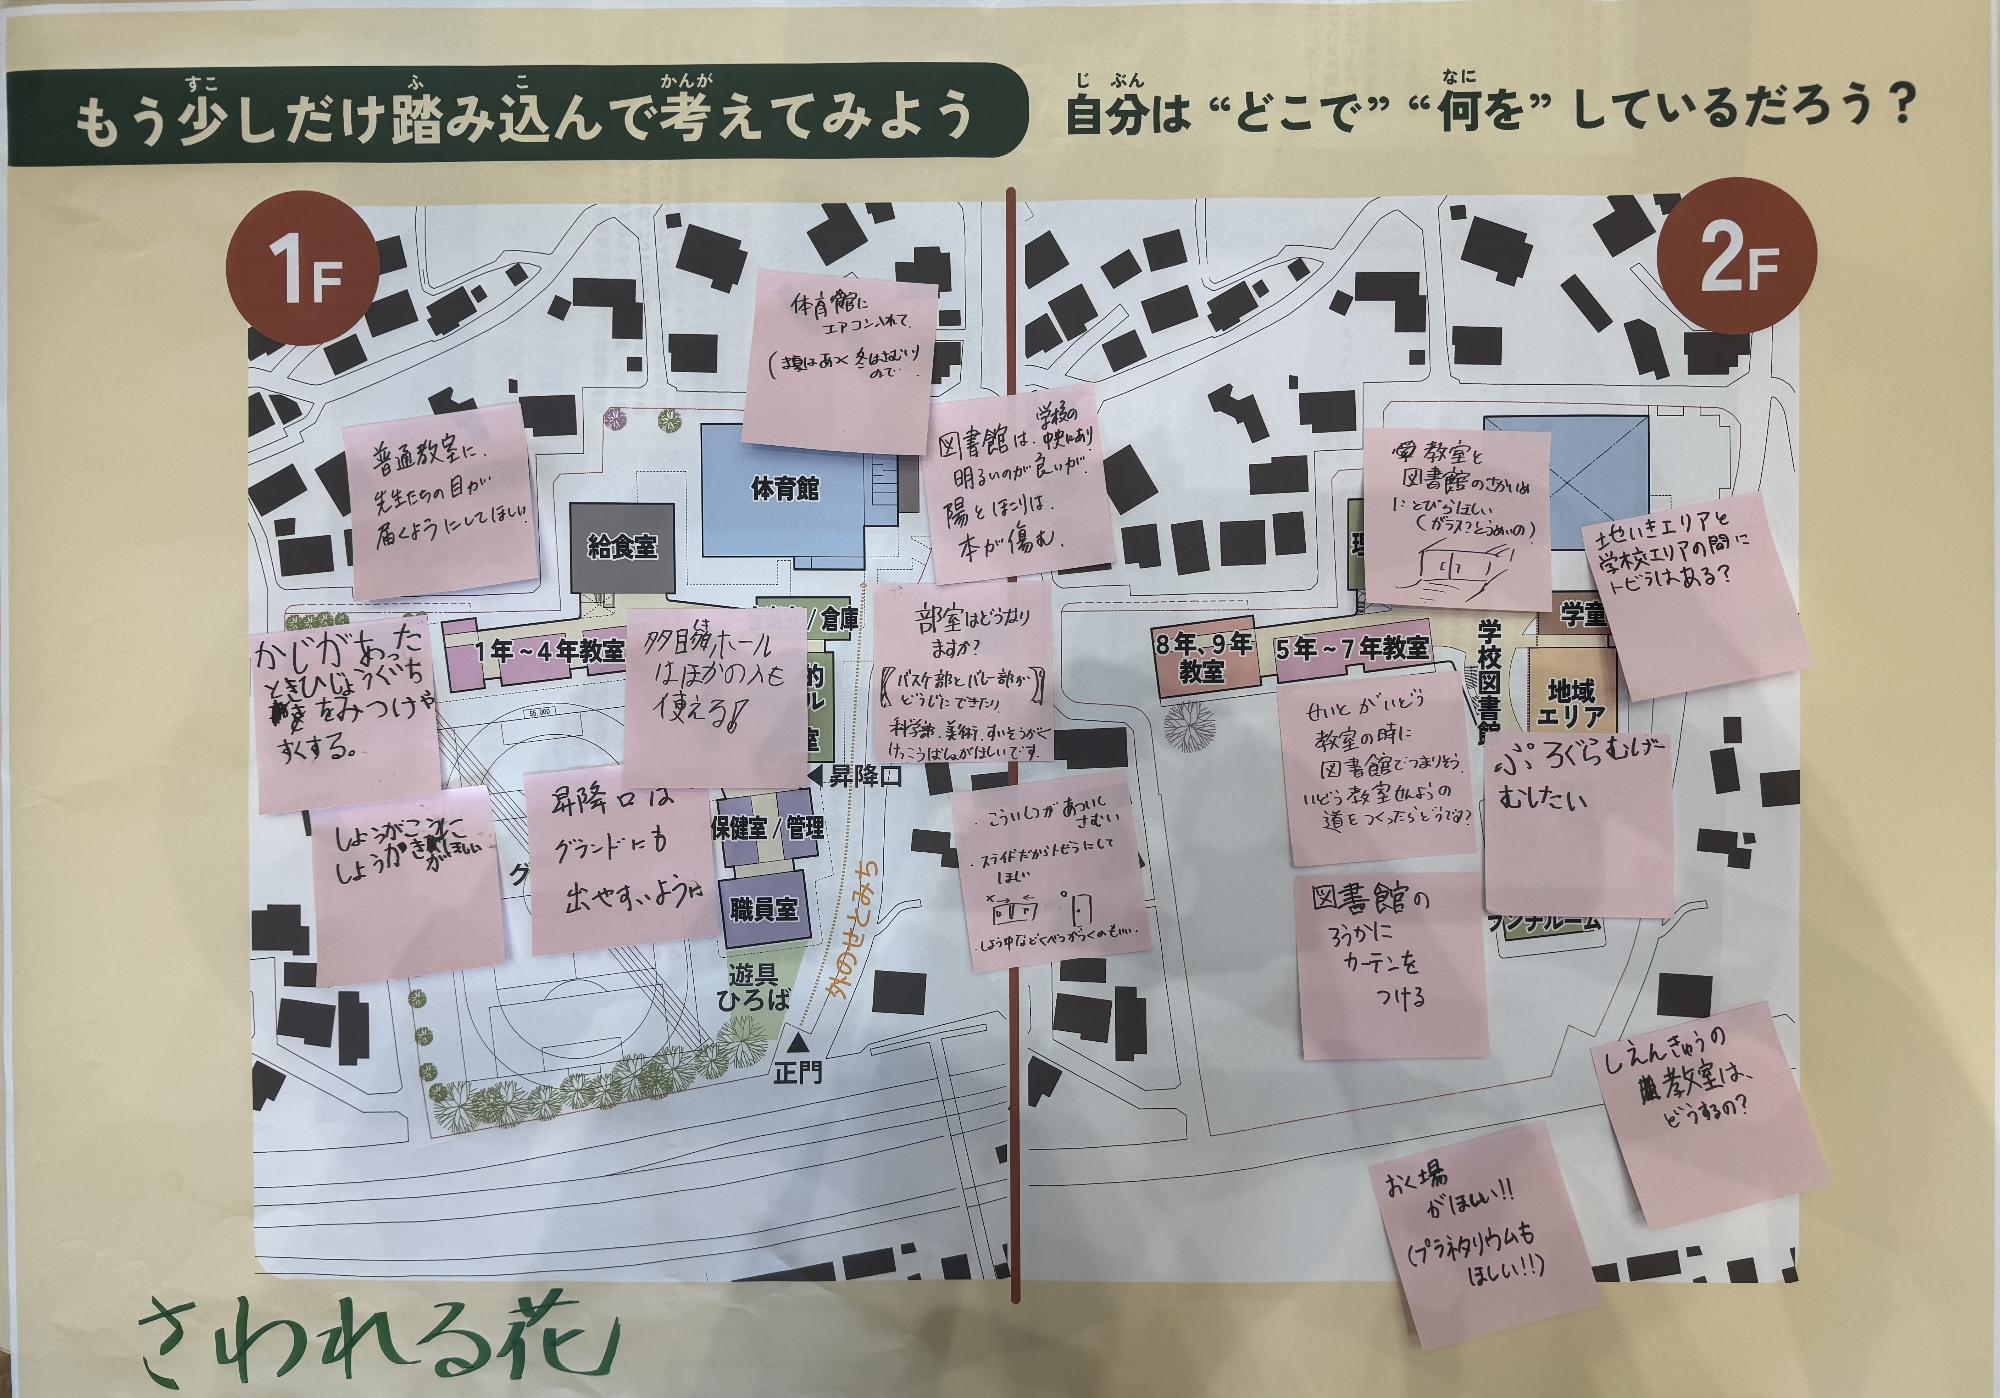 もう少しだけ踏み込んで考えてみよう
すこ ふ こ かんが
自分は“どこで”“何を”しているだろう？
じ ぶん なに
1F
2F
体育館に
エアコン入れて。
(夏はあつく冬はさむい
ので…
普通教室に、
先生たちの目が
届くようにしてほしい
図書館は、学校の
中央にあり
明るいのが良いが、
陽とほこりは、
本が傷む。
体育館
給食室
/ 倉庫
1年～4年教室
かじがあった
ときひじょうぐち
をみつけや
すくする。
多目的ホール
はほかの人も
使える!
部室はどうなり
ますか?
バスケ部とバレー部が
どうじにできたり
科学部、美術、すいそうがく
けっこうばしょがほしいです。
昇降口
しょうがこうに
しょうかきがほしい
昇降口は
グランドにも
出やすいように
グ
保健室 / 管理
職員室
遊具
ひろば
外のせとみち
正門
・こういしつがあつい
さむい
・スライドだからトビラにして
ほしい
教室と
図書館のさかいめ
にとびらほしい
(ガラス?とうめいの)
地いきエリアと
学校エリアの間に
トビラはある?
8年、9年
教室
5年～7年教室
学校図書館
学童
地域
エリア
せいとがいどう
教室の時に
図書館でつまりそう。
いどう教室せんようの
道をつくったらどうです?
ぷろぐらむげー
むしたい
ランチルーム
図書館の
ろうかに
カーテンを
つける
しえんきゅうの
教室は、
どうするの?
おく場
がほしい!!
(プラネタリウムも
ほしい!!)
さわれる花